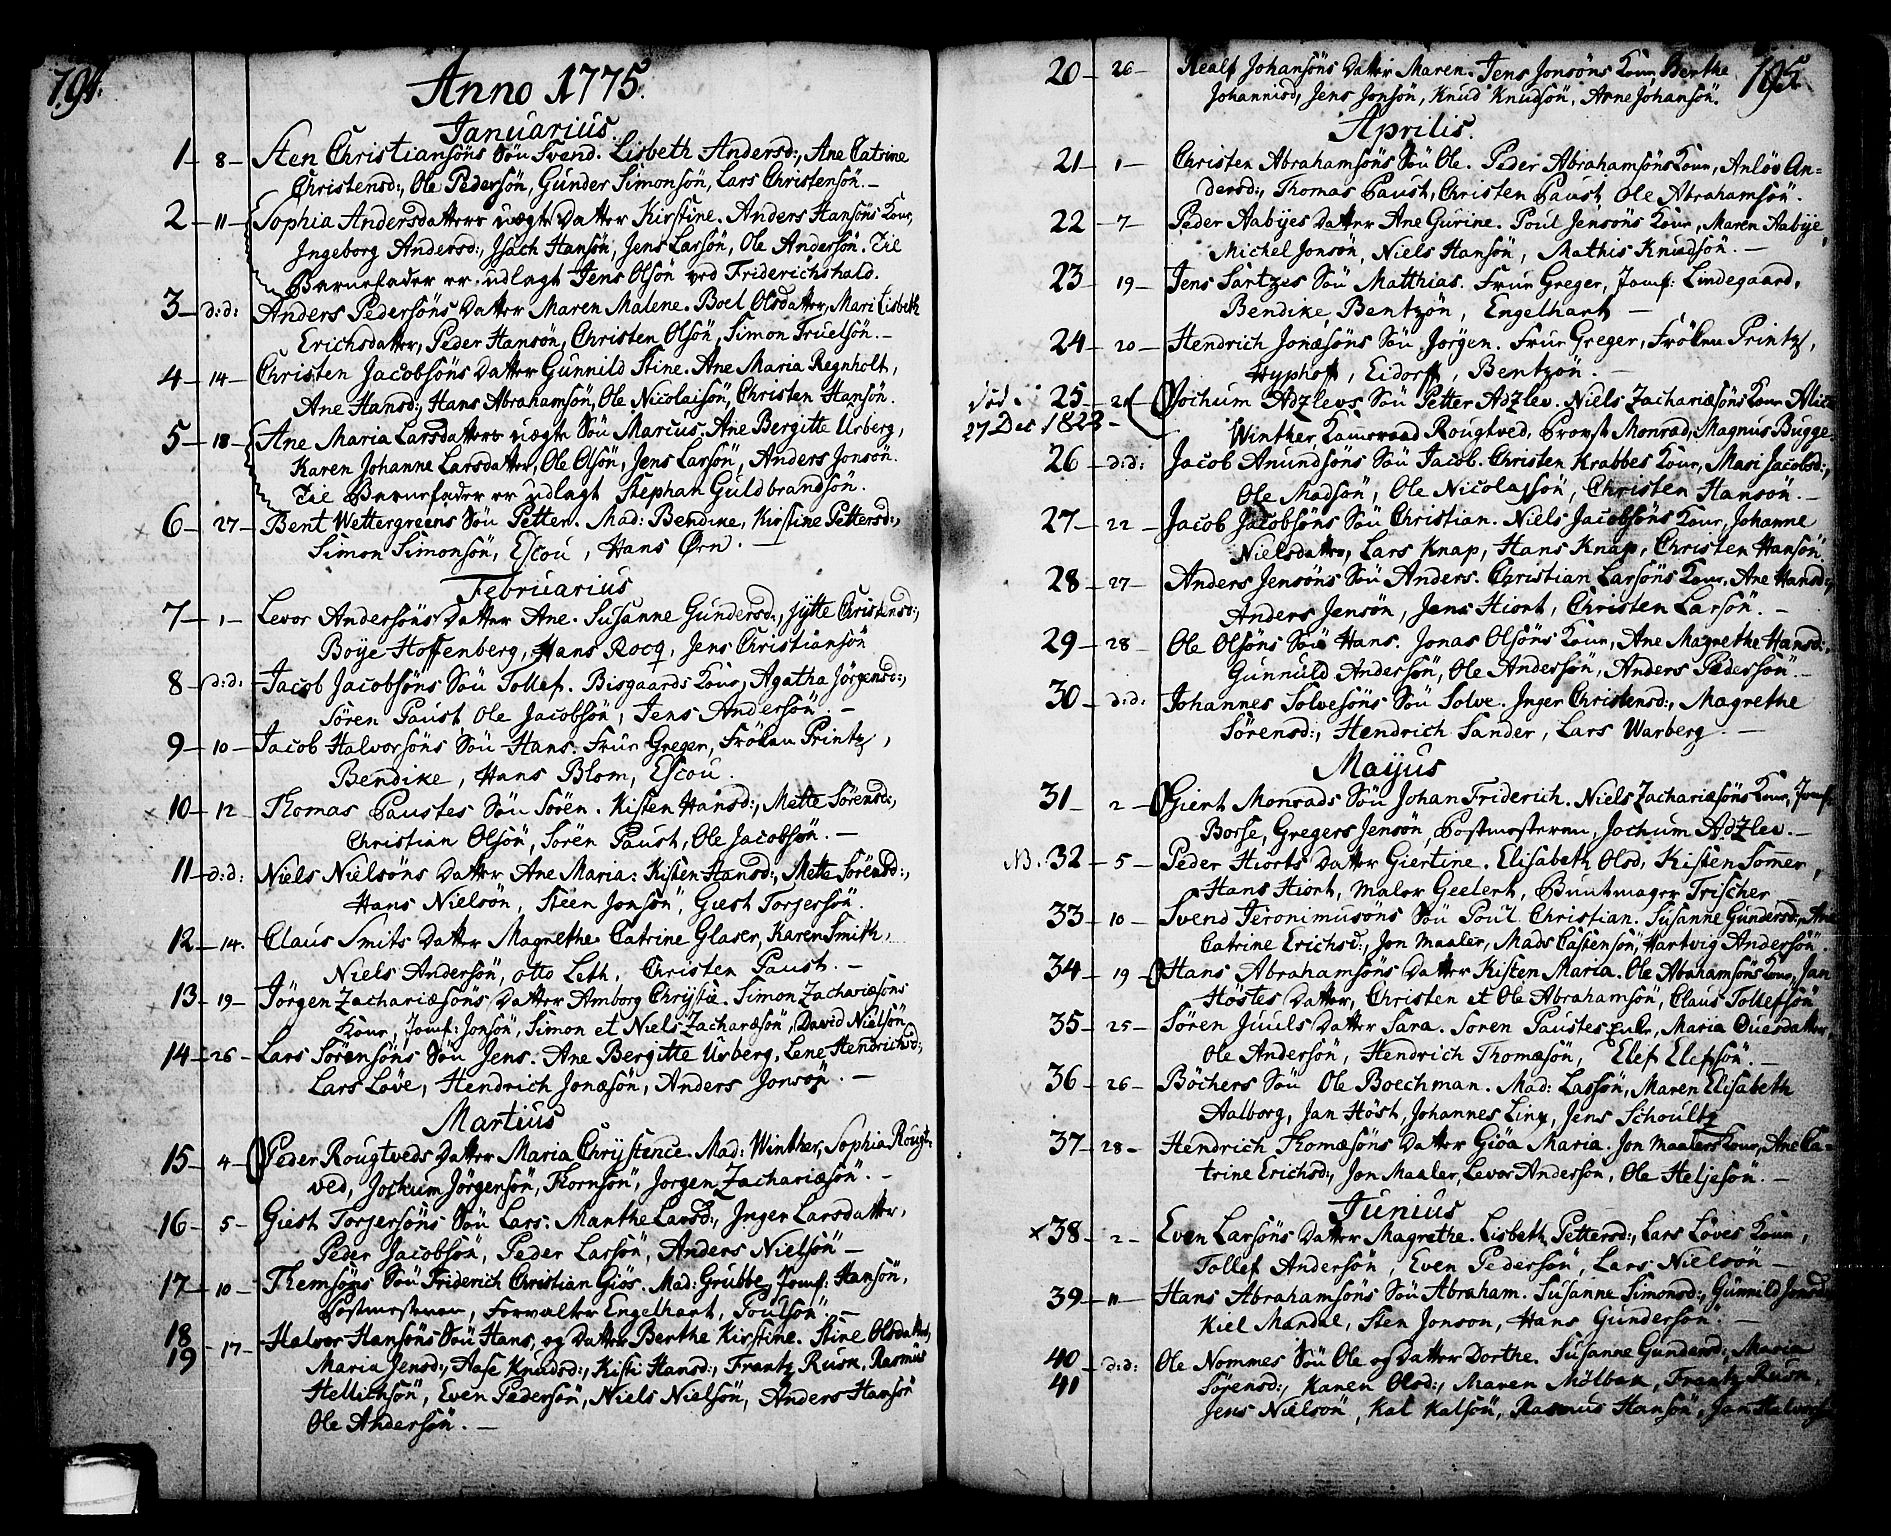 194.
Anno 1775.
Januarius.
1 - 8 - Sten Christiansöns Sön Svend. Lisbeth Andersd:, Ane Catrine
Christensd:, Ole Pedersön, Gunder Simonsön, Lars Christensön. -
2 - 11 - Sophia Andersdatters uægte Datter Kirstine. Anders Hansöns Kone,
Ingeborg Andersd:, Isach Hansön, Jens Larsön, Ole Andersön. Til
Barnefader er udlagt Jens Olsön ved Friderichshald.
3 - d:d: Anders Pedersöns Datter Maren Malene. Boel Olsdatter, Mari Lisbeth
Erichsdatter, Peder Hansön, Christen Olsön, Simon Truelsön. -
4 - 14 - Christen Jacobsöns Datter Gunnild Stine. Ane Maria Regnholt,
Ane Hansd:, Hans Abrahamsön, Ole Nicolaisön, Christen Hansön.
5 - 18 - Ane Maria Larsdatters uægte Sön Marcus. Ane Bergitte Urberg,
Karen Johanne Larsdatter, Ole Olsön, Jens Larsön, Anders Jonsön.
Til Barnefader er udlagt Stephan Guldbrandsön.
6 - 27 - Bent Wettergreens Sön Petter. Mad: Bendike, Kirstine Pettersd:,
Simon Simonsön, Escou, Hans Ørn. -
Februarius
7 - 1 - Levor Andersöns Datter Ane. Susanne Gundersd:, Jytte Christensd:,
Boye Hoffenberg, Hans Rocq, Jens Christiansön
8 - d:d: Jacob Jacobsöns Sön Tollef. Bisgaards Kone, Agatha Jörgensd:,
Sören Paust, Ole Jacobsön, Jens Andersön. -
9 - 10 - Jacob Halvorsöns Sön Hans. Frue Greger, Fröken Printz,
Bendike, Hans Blom, Escou.
10 - 12 Thomas Paustes Sön Sören. Kisten Hansd:, Mette Sörensd:,
Christian Olsön, Sören Paust, Ole Jacobsön. -
11 - d:d: Niels Nielsöns Datter Ane Maria: Kisten Hansd:, Mette Sörensd:,
Hans Nielsön, Steen Jonsön, Giest Torjersön.
12 - 14. Claus Smits Datter Magrethe. Catrine Glaser, Karen Smith,
Niels Andersön, Otto Leth, Christen Paust. -
13 - 19 - Jörgen Zachariæsöns Datter Amborg Chrystie. Simon Zachariæsöns
Kone, Jomf: Jonsön, Simon et Niels Zachariæsön, David Nielsön
14 - 26 - Lars Sörensöns Sön Jens. Ane Bergitte Urberg, Lene Hendrichsd:,
Lars Löve, Hendrich Jonæsön, Anders Jonsön. -
Martius
15 - 4 - Peder Rougtveds Datter Maria Chrystence. Mad: Winther, Sophia Rougt-
ved, Jochum Jörgensön, Thornsön, Jorgen Zachariæsön. -
16 - 5 - Giest Torjersöns Sön Lars. Marthe Larsd:, Inger Larsdatter,
Peder Jacobsön, Peder Larsön, Anders Nielsön -
17 - 10 - Themsöns Sön Friderich Christian Giös. Mad: Grubbe, Jomf: Hansön,
Postmesteren, Forvalter Engelhart, Poulsön. -
18
19 - 17 - Halvor Hansöns Sön Hans, og Datter Berthe Kisstine. Stine Olsdatter,
Maria Jensd:, Aase Knudsd:, Kisti Hansd:, Frantz Rusn, Rasmus
Hellichsön, Even Pedersön, Niels Nielsön, Anders Hansön
Ole Andersön. -
195
20 - 26 - Realf Johansöns Datter Maren. Jens Jonsöns Kone, Berthe
Johannisd, Jens Jonsön, Knud Knudsön, Arne Johansön.
Aprilis.
21 - 1 - Christen Abrahamsöns Sön Ole. Peder Abrahamsöns Kone, Anlöv An-
dersd:, Thomas Paust, Christen Paust, Ole Abrahamsön.
22 - 7 - Peder Aabyes Datter Ane Gurine. Poul Jensöns Kone, Maren Aabye,
Michel Jonsön, Niels Hansön, Mathis Knudsön. -
23 - 19 - Jens Sartzes Sön Matthias. Frue Greger, Jomf: Lindegaard,
Bendike, Bentzön, Engelhart -
24 - 20 - Hendrich Jonæsöns Sön Jörgen. Frue Greger, Fröken Printz,
Hyphoff, Eidorff, Bentzön. -
död i 25 - 21 Jochum Adzlevs Sön Petter Adzlev. Niels Zachariæsöns Kone, Alice
27 Dec 1828 - Winther, Kamraad Rougtved, Provst Monrad, Magnus Bugge.
26 - d:d: Jacob Anundsöns Sön Jacob. Christen Krabbes Kone, Mari Jacobsd:,
Ole Madsön, Ole Nicolajsön, Christen Hansön. -
27 - 22 - Jacob Jacobsöns Sön Christian. Niels Jacobsöns Kone, Johanne
Nielsdatter, Lars Knap, Hans Knap, Christen Hansön
28 - 27 - Anders Jensöns Sön Anders. Christian Larsöns Kone, Ane Hansd:,
Anders Jensön, Jens Hiort, Christen Larsön. -
29 - 28 - Ole Olsöns Sön Hans. Jonas Olsöns Kone, Ane Magrethe Hansd:,
Gunnuld Andersön, Ole Andersön, Anders Pedersön. -
30 - d:d: Johannes Solvesöns Sön Solve. Inger Christensd:, Magrethe
Sörensd:, Hendrich Sander, Lars Warberg. -
Maijus
31 - 2 - Giert Monrads Sön Johan Friderich. Niels Zachariæsöns Kone, Jomf:
Borse, Gregers Jensön, Postmesteren, Jochum Adzlev. -
NB. 32 - 5 - Peder Hiorts Datter Giertine. Elisabeth Olsd, Kisten Somer,
Hans Hiort, Maler Geelert, Buntmager Frischer
33 - 10 - Svend Jeronimusöns Sön Poul Christian. Susanne Gundersd:, Ane
Catrine Erichsd:, Jon Maaler, Mads Castensön, Hartvig Andersön.
34 - 19 - Hans Abrahamsöns Datter Kisten Maria. Ole Abrahamsöns Kone, Jan
Höstes Datter, Christen et Ole Abrahamsön, Claus Tollefsön
35 - 25 - Sören Juuls Datter Sara. Soren Paustes Enke, Maria Ouesdatter,
Ole Andersön, Hendrich Thomæsön, Elef Elefsön. -
36 - 26 - Böchers Sön Ole Boechman. Mad: Lassön, Maren Elisabeth
Aalborg, Jan Höst, Johannes Linx, Jens Schoultz
37 - 28 - Hendrich Thomæsöns Datter Giöa Maria. Jon Maalers Kone, Ane Ca-
trine Erichsd:, Jon Maaler, Levor Andersön, Ole Heljesön. -
Junius
× 38 - 2 - Even Larsöns Datter Magrethe. Lisbeth Pettersd:, Lars Löves Kone,
Tollef Andersön, Even Pedersön, Lars Nielsön -
39 - 11 - Hans Abrahamsöns Sön Abraham. Susanne Simonsd:, Gunnild Jonsd:
Kiel Mandal, Sten Jonson, Hans Gundersön. -
40 - d:d: Ole Nommes Sön Ole og Datter Dorthe. Susanne Gundersd: Maria
41 Sörensd:, Karen Olsd:, Maren Mölbak, Frantz Rusn,
Jens Nielsön, Kal Kalsön, Rasmus Hansön, Jan Halvorsön